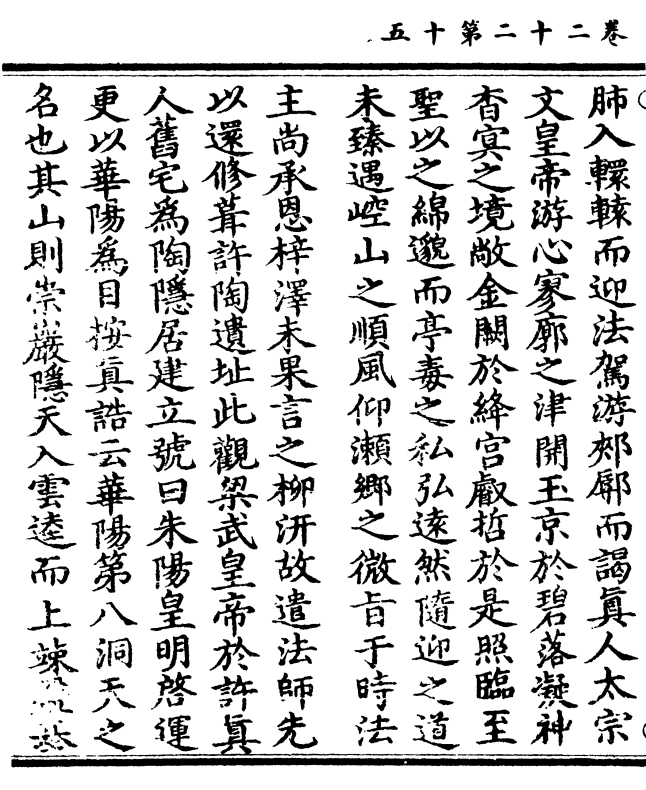 卷二十二第十五
肺入轘轅而迎法駕游郊鄏而謁真人太宗
文皇帝游心寥廓之津開玉京於碧落凝神
杳冥之境敞金闕於絳宮叡哲於是照臨至
聖以之綿邈而亭毒之私弘遠然隨迎之道
未臻遇崆山之順風仰瀨鄉之微旨于時法
主尚承恩梓澤未果言之柳汧故遣法師先
以還修葺許陶遺址此觀梁武皇帝於許真
人舊宅為陶隱居建立號曰朱陽皇明啓運
更以華陽為目按真誥云華陽第八洞天之
名也其山則崇巖隱天入雲逵而上竦